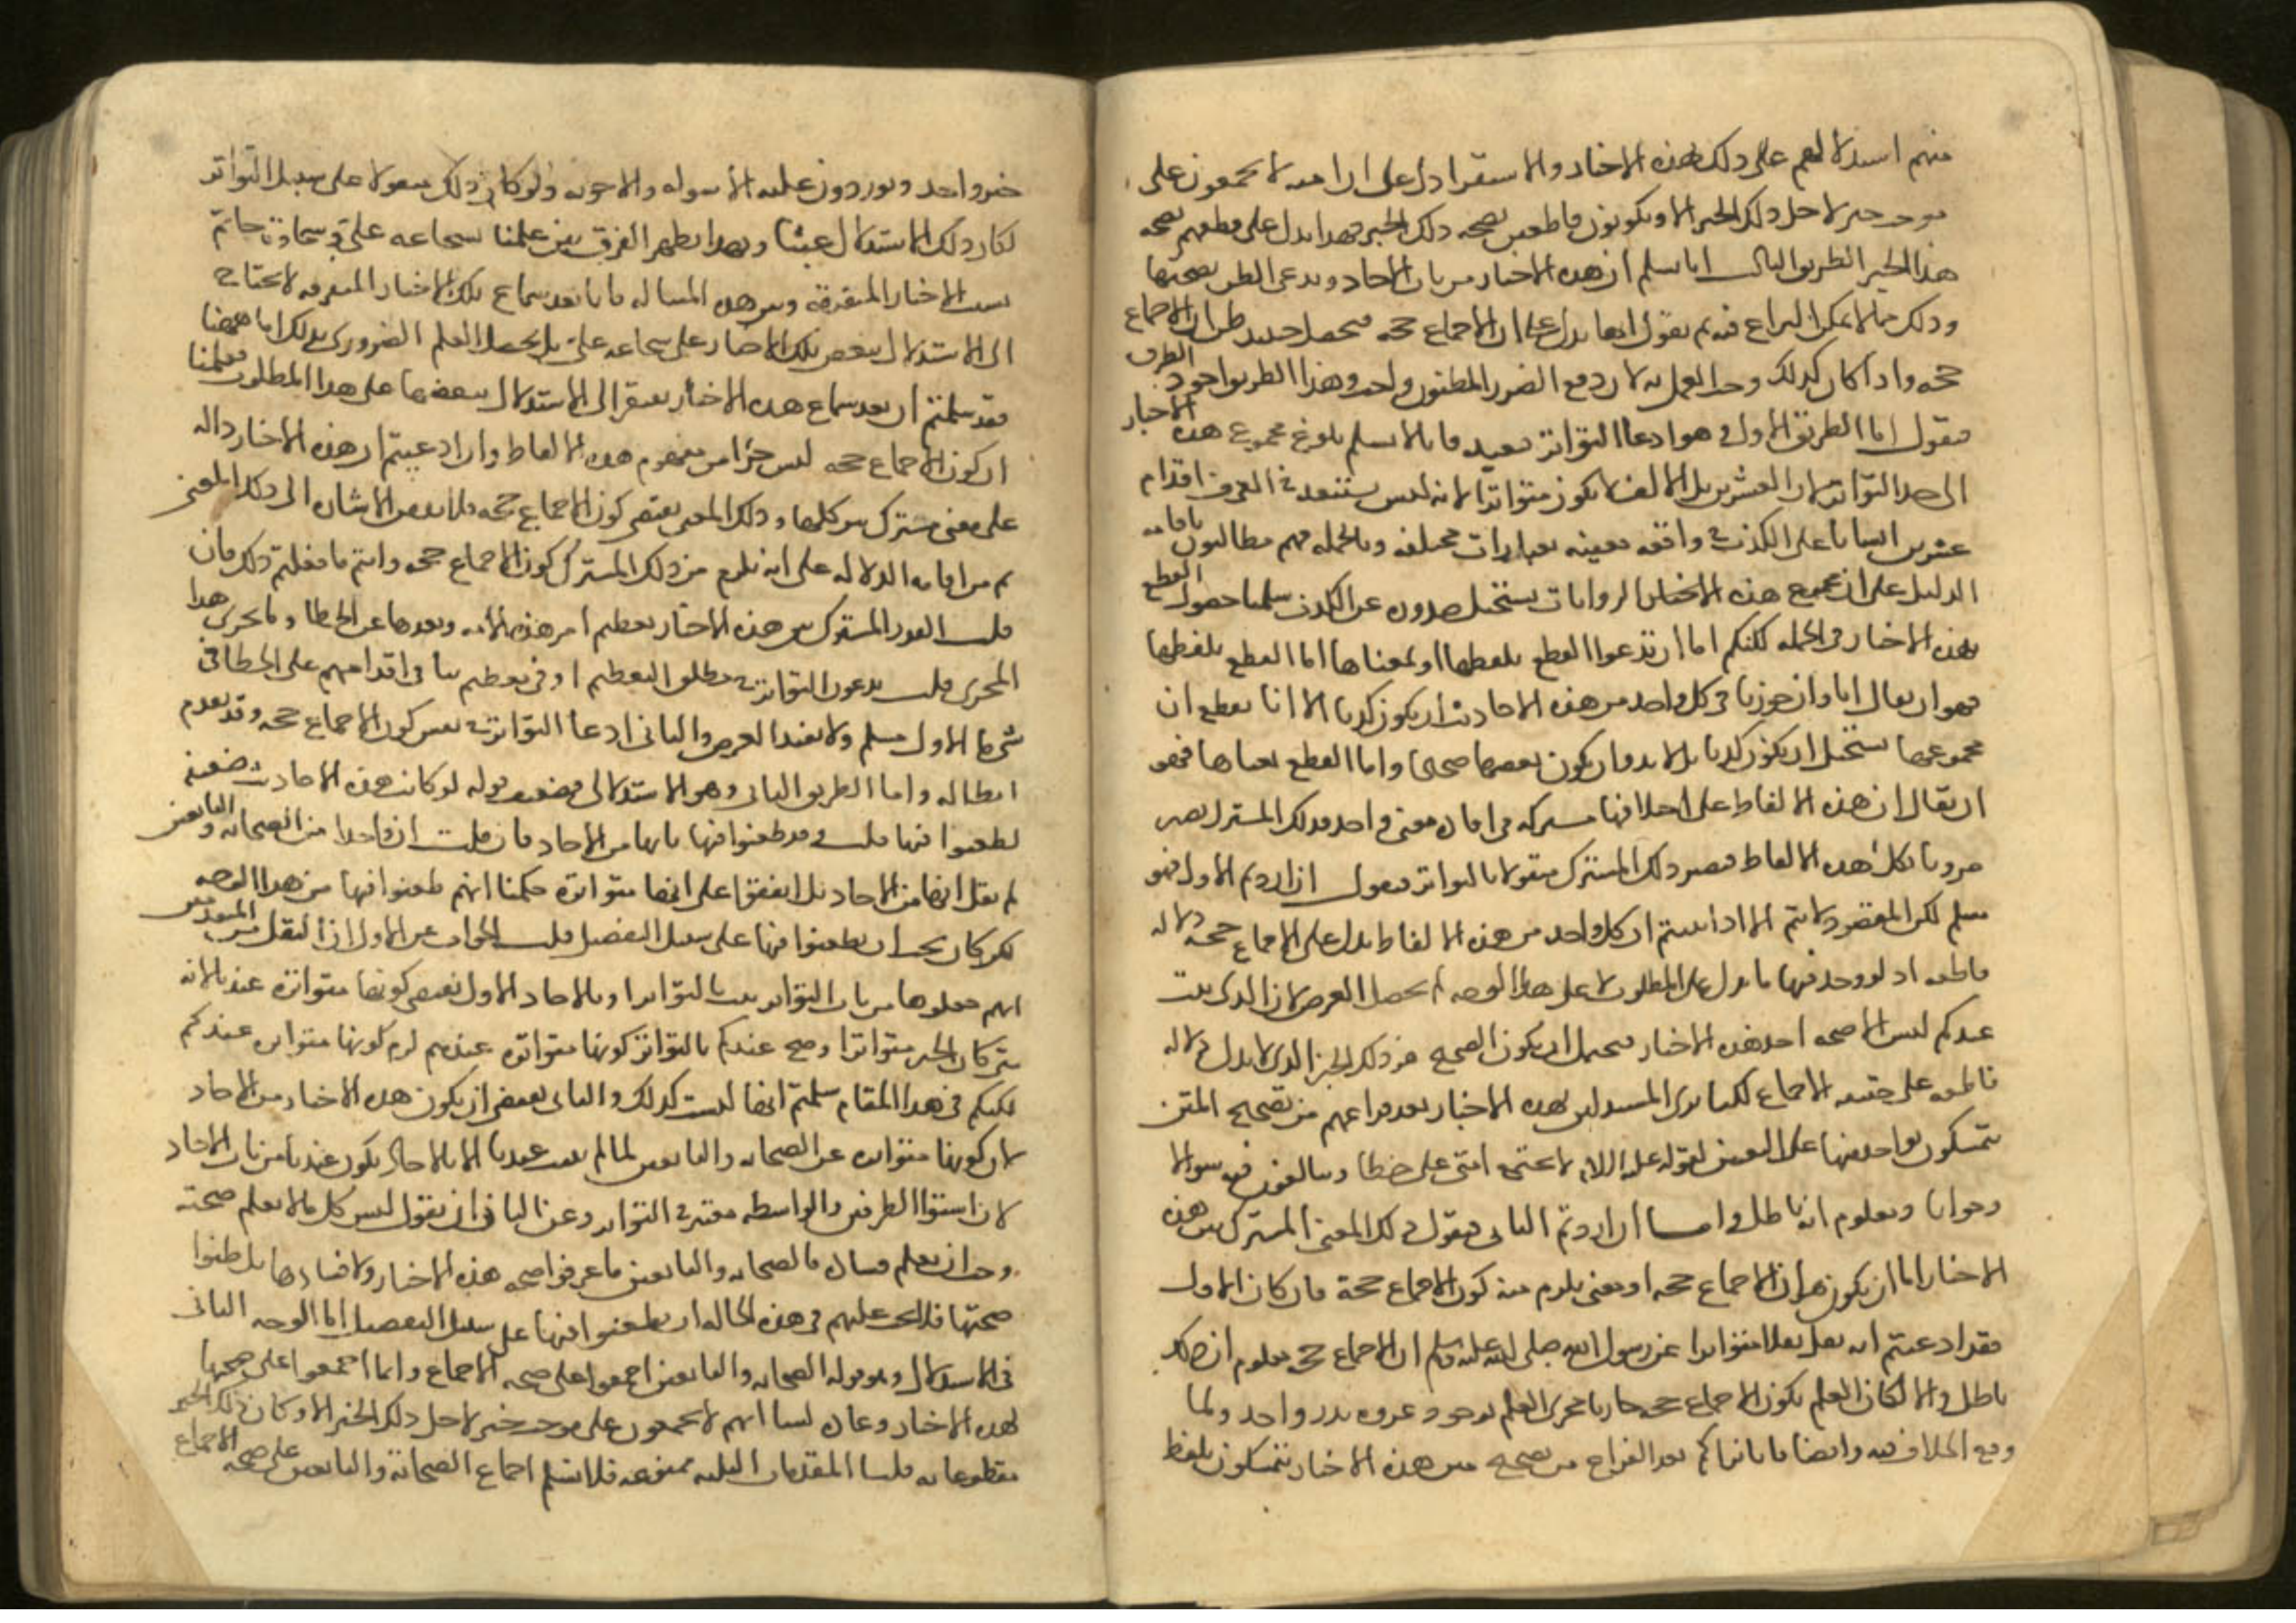 منهم استدلالهم على ذلك بهذه الاخبار والاستقرا دل على ان امته لا يجمعون على
موجب خبر لاجل ذلك الخبر الا ويكونون قاطعين بصحه ذلك الخبر فهدا يدل على قطعهم بصحه
هذا الخبر الطريق الثالث انا نسلم ان هذه الاخبار من باب الاحاد وندعى الظن بصحتها
وذلك مما لا يمكن النزاع فيه ثم نقول انها تدل على ان الاجماع حجه فيحصل حينيد ظن ان الاجماع
حجه وادا كان كدلك وجب العمل به لان دفع الضرر المظنون واجب وهذا الطريق اجود الطرق
فنقول اما الطريق الاول وهو ادعا التواتر فبعيد فانا لا نسلم بلوغ مجموع هذه الاخبار
الى حد التواتر فان العشرين بل الالف لا يكون متواترا لانه ليس يستبعد في العرف اقدام
عشرين انسانا على الكذب في واقعه معينه بعبارات مختلفه وبالجمله فهم مطالبون باقامه
الدليل على ان جميع هذه الاخبار الروايات يستحيل صدوره عن الكذب سلمنا حصول القطع
بهذه الاخبار في الجمله لكنكم اما ان تدعوا القطع بلفظها او بمعناها اما القطع بلفظها
فهو ان يقال انا وان جوزنا في كل واحد من هذه الاحاديث ان يكون كدبا الا انا نقطع ان
مجموعها يستحيل ان يكون كدبا بل لا بد وان يكون بعضها صحيحا واما القطع بمعناها فهو
ان يقال ان هذه الالفاظ على اختلافها مشتركه في افاده معنى واحد فدلك المشترك يصير
مرويا بكل هده الالفاظ فيصير دلك المشترك منقولا بالتواتر فنقول ان اردتم الاول فهو
مسلم لكن المقصود لا يتم الا ادا بينتم ان كل واحد من هذه الالفاظ يدل على ان الاجماع حجه دلاله
قاطعه اد لو وجد فيها ما يدل على المطلوب لا على هدا الوجه لم يحصل الغرض لان الدى ثبت
عندكم ليس الا صحه احد هذه الاخبار فيحتمل ان يكون الصحيح هو ذلك الخبر الدى لا يدل دلاله
قاطعه على حقيه الاجماع لكنا نرى المستدلين بهده الاخبار بعد فراغهم من تصحيح المتن
يتمسكون بواحد منها على التعيين لقوله عليه السلام لا تجتمع امتى على خطا ويبالغون فيه سوالا
وجوابا ومعلوم انه باطل واما ان اردتم الثانى فنقول ذلك المعنى المشترك بين هذه
الاخبار اما ان يكون هو ان الاجماع حجه او معنى يلزم منه كون الاجماع حجة فان كان الاول
فقد ادعيتم انه نقل نقلا متواترا عن رسول الله صلى الله عليه وسلم ان الاجماع حجه معلوم ان ذلك
باطل والا لكان العلم بكون الاجماع حجه جاريا مجرى العلم بوجود غزوه بدر واحد ولما
وقع الخلاف فيه وايضا فانا نراكم بعد الفراغ من تصحيح متن هذه الاخبار تتمسكون بلفظ
خبر واحد وتوردون عليه الاسوله والاجوبه ولو كان ذلك منقولا على سبيل التواتر
لكان ذلك الاستدلال عبثا وبهدا يظهر الفرق بين علمنا بشجاعه علي وسخاوة حاتم
بسبب الاخبار المتفرقة وبين هده المساله فانا بعد سماع تلك الاخبار المتفرقه لا نحتاج
الى الاستدلال ببعض تلك الاخبار على شجاعه علي بل يحصل العلم الضرورى بدلك اما هاهنا
فقد سلمتم ان بعد سماع هده الاخبار نفتقر الى الاستدلال ببعضها على هدا المطلوب فعلمنا
ان كون الاجماع حجه ليس جزا من مفهوم هده الالفاظ وان ادعيتم ان هذه الاخبار داله
على معنى مشترك بين كلها ودلك المعنى يقتضى كون الاجماع حجه فلا بد من الاشاره الى دلك المعنى
ثم من اقامه الدلاله على انه يلزم من ذلك المشترك كون الاجماع حجه وانتم ما فعلتم دلك فان
قلت القدر المشترك بين هذه الاخبار تعظيم امر هذه الامه وبعدها عن الخطا وما يجرى هدا
المجرى قلت تدعون التواتر في مطلق التعظيم او في تعظيم ينافى اقدامهم على الخطا في
شى ما الاول مسلم ولا يفيد الغرض والثانى ادعا التواتر في نفس كون الاجماع حجه وقد تقدم
ابطاله واما الطريق الثانى وهو الاستدلال فضعيف قوله لو كانت هده الاحاديث ضعيفه
لطعنوا فيها قلت قد طعنوا فيها بانها من الاحاد فان قلت ان واحدا من الصحابه والتابعين
لم يقل انها من الاحاد بل اتفقوا على انها متواتره حكمنا انهم طعنوا فيها من هدا الوجه
لكن كان يجب ان يطعنوا فيها على سبيل التفصيل قلت الجواب عن الاول ان النقل من المتقدمين
انهم جعلوها من باب التواتر ثبت بالتواتر او بالاحاد الاول يقتضى كونها متواترة عندنا لانه
متى كان الخبر متواترا وصح عندكم بالتواتر كونها متواتره عندهم لزم كونها متواتره عندكم
لكنكم في هدا المقام سلمتم انها ليست كدلك والثانى يقتضى ان يكون هده الاخبار من الاحاد
لان كونها متواتره عن الصحابه والتابعين لما لم يثبت عندنا الا بالاحاد يكون عندنا من باب الاحاد
لان استوا الطرفين والواسطه معتبر في التواتر وعن الثانى ان نقول ليس كل ما لا يعلم صحته
وجب ان يعلم فساده فالصحابه والتابعين ما عرفوا صحه هذه الاخبار ولا فسادها بل ظنوا
صحتها فلا يجب عليهم في هذه الحاله ان يطعنوا فيها على سبيل التفصيل اما الوجه الثانى
في الاستدلال وهو قوله الصحابه والتابعين اجمعوا على صحه الاجماع وانما اجمعوا على صحتها
لهده الاخبار وعاده الناس انهم لا يجمعون على موجب خبر لاجل دلك الخبر الا وكان ذلك الخبر
مقطوعا به قلنا المقدمات الثلثه ممنوعه فلا نسلم اجماع الصحابة والتابعين على صحه الاجماع